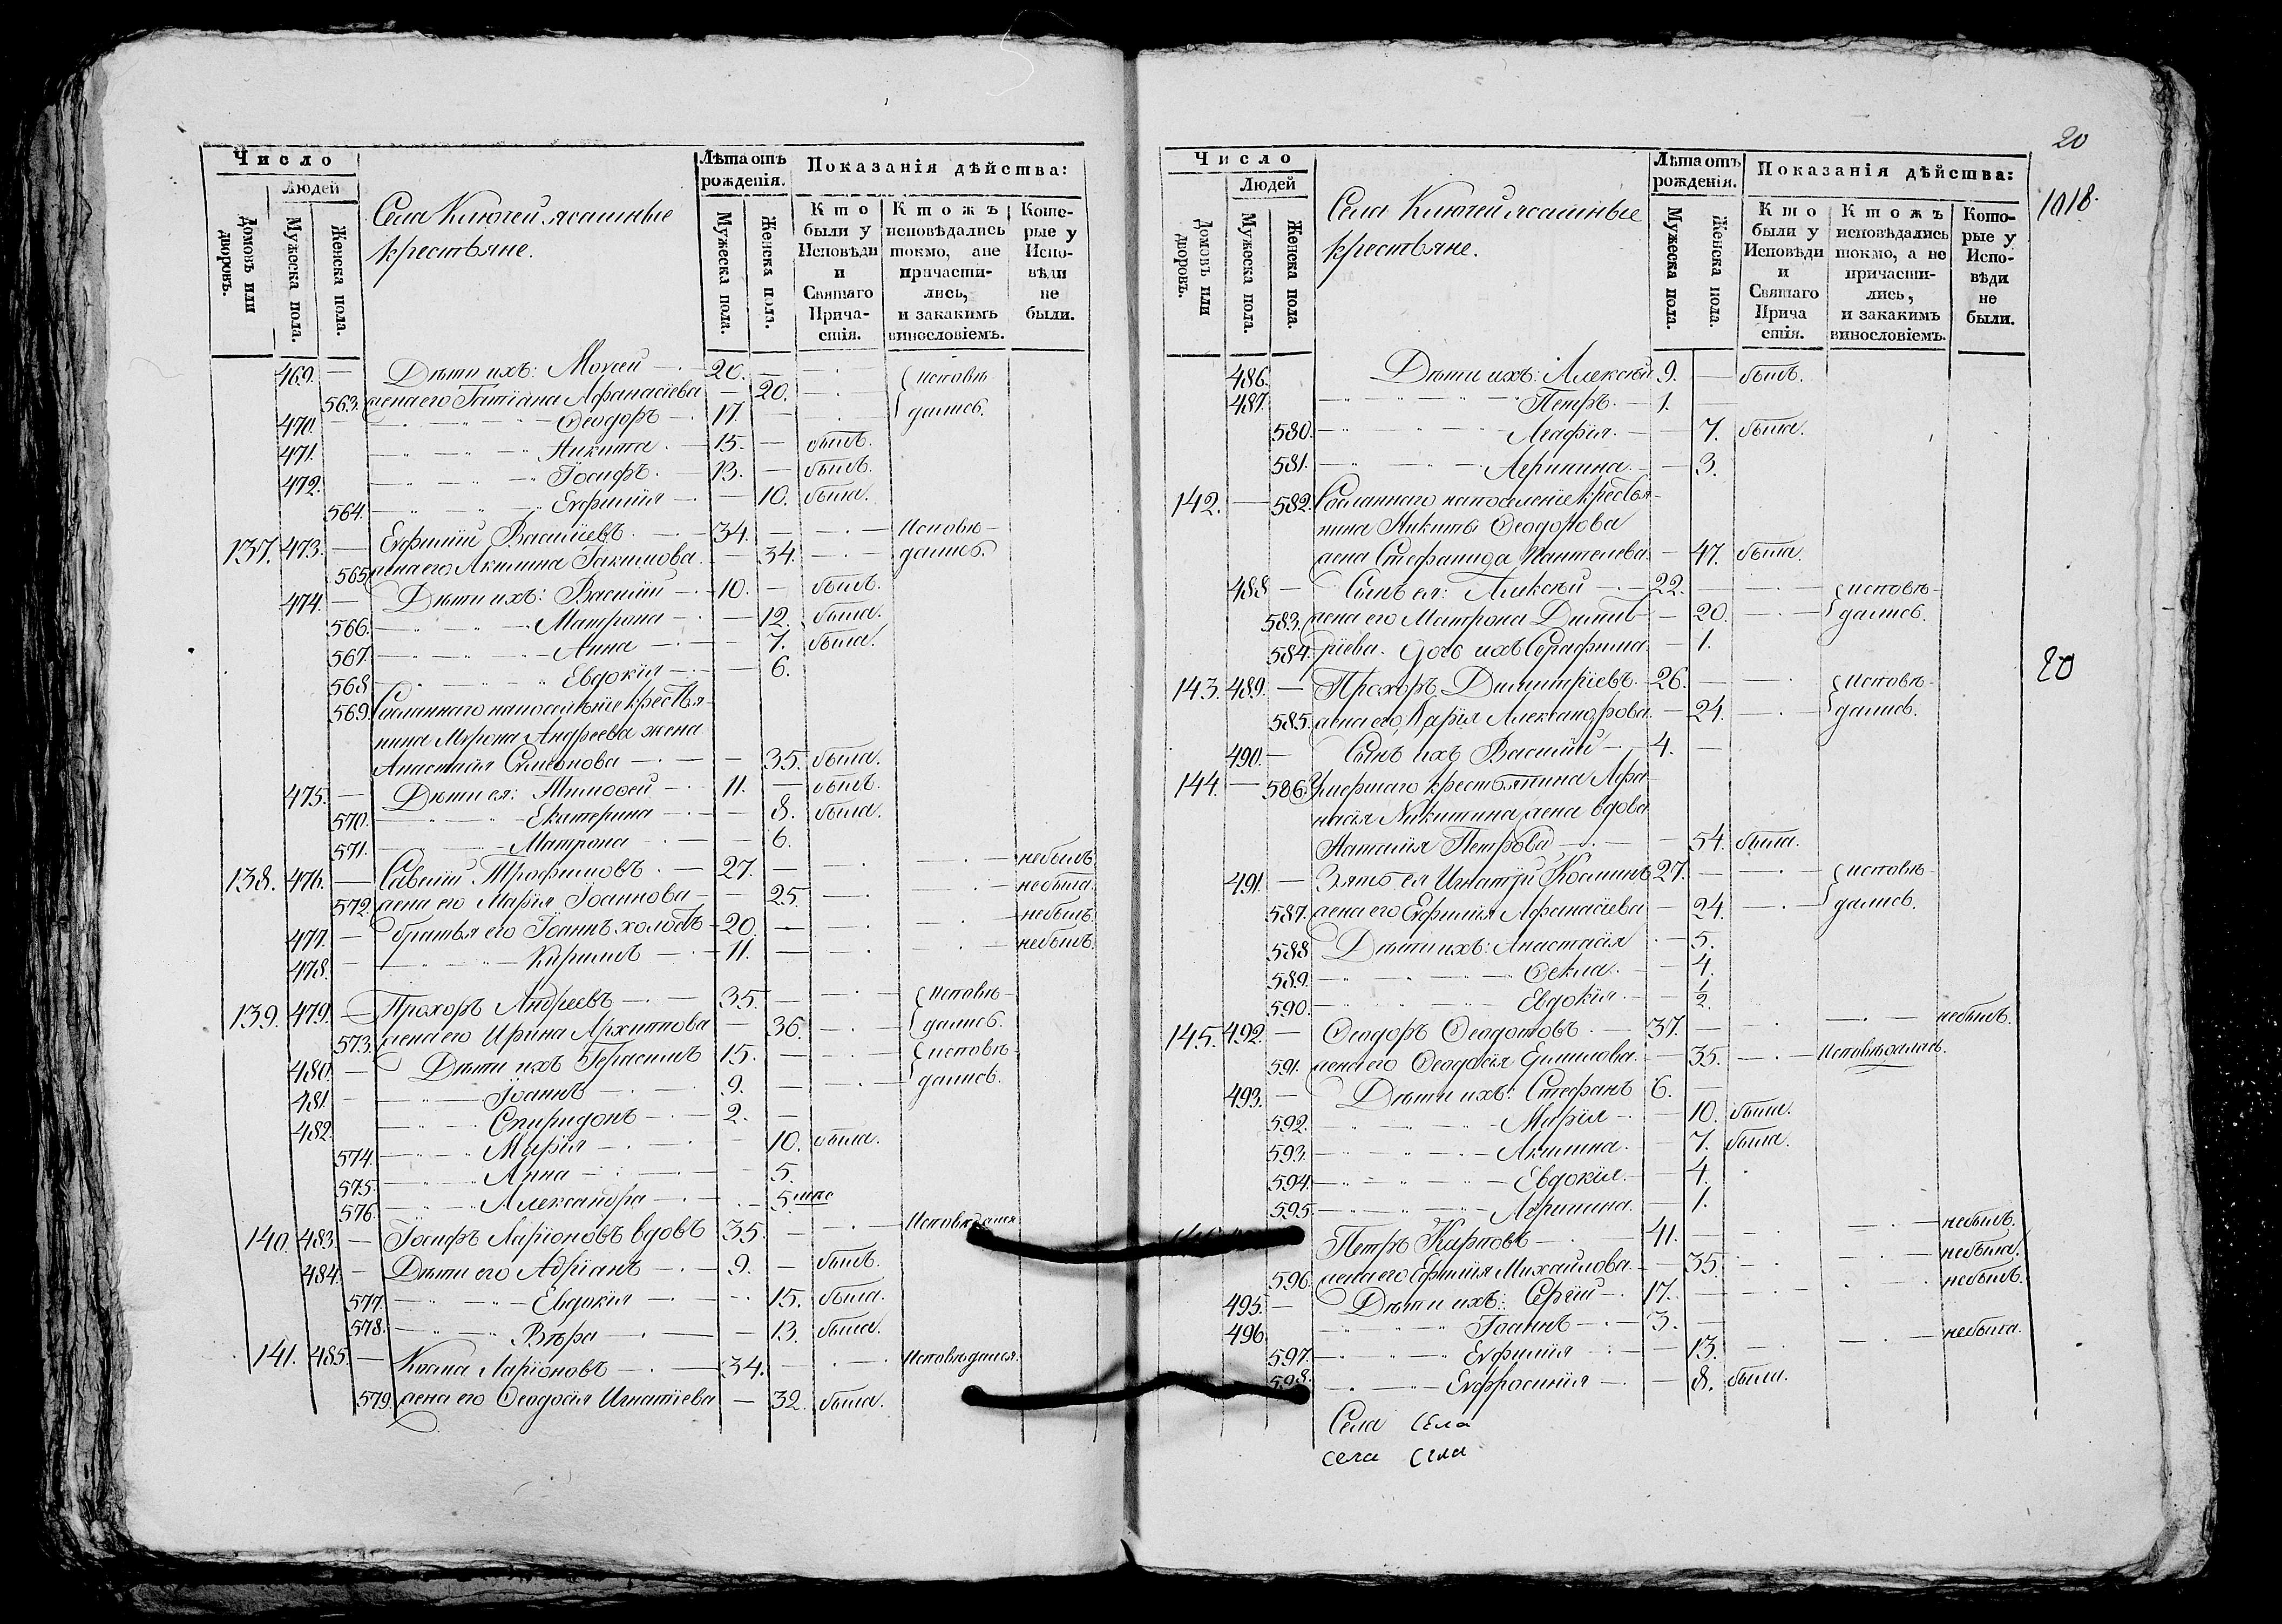 Число
Людей
Домовъ или дворовъ.
Мужеска пола.
Женска пола.
Села Ключей ясашные
крестьяне.
Лѣта отъ рожденія.
Мужеска пола.
Женска пола.
Показанія дѣйства:
Кто были у Исповѣди и Святаго Причастія.
Ктожъ исповѣдались токмо, а не причастились, и закакимъ винословіемъ.
Которые у Исповѣди не были.
469. — Дѣти ихъ: Моѵсей — 20. — исповѣ-
563. жена его Татіана Афанасіева — 20. дались.
470. — Ѳеодоръ — 17.
471. Никита — 15. — былъ.
472. Іосифъ — 13. — былъ.
564. Евфимія — 10. была.
137. 473. — Евфимій Васильевъ — 34. — Исповѣ-
565. жена его Акилина Іакимова — 34. дались.
474. — Дѣти ихъ: Василій — 10. — былъ.
566. Матрона — 12. была.
567. Анна — 7. была.
568 Евдокія — 6.
569. Сосланнаго на поселѣніе крестья-
нина Мѵрона Андреева жена
Анастасія Сѵмеонова — 35. была.
475. — Дѣти ея: Тимоѳей — 11. — былъ.
570. Екатерина — 8. была.
571. Матрона — 6.
138. 476. — Савелій Трофимовъ — 27. — небылъ.
572. жена его Марія Іоаннова — 25. небыла.
477. — братья его Іоаннъ холостъ — 20. — небылъ.
478. — Кирилъ — 11. — небылъ.
139. 479. — Прохоръ Андреевъ — 35. — исповѣ-
573. жена его Ирина Архиппова — 36. дались.
480. — Дѣти ихъ Герасимъ 15. — исповѣ-
481. — Іоаннъ — 9. — дались.
482. Спиридонъ — 2. —
574. Марія — 10. была.
575. Анна — 5.
576. Александра — 5.
140. 483. — Іосифъ Ларіоновъ вдовъ 35. — Исповѣдался
484. — Дѣти его Адріанъ — 9. — былъ.
577. Евдокія — 15. была.
578. Вѣра — 13. была.
141. 485. — Косма Ларіоновъ — 34. — Исповѣдался.
579. жена его Ѳеодосія Игнатіева — 32. была.
20
1018.
Число
Людей
Домовъ или дворовъ.
Мужеска пола.
Женска пола.
Села Ключей ясашные
крестьяне.
Лѣта отъ рожденія.
Мужеска пола.
Женска пола.
Показанія дѣйства:
Кто были у Исповѣди и Святаго Причастія.
Ктожъ исповѣдались токмо, а не причастились, и закакимъ винословіемъ.
Которые у Исповѣди не были.
486. Дѣти ихъ: Алексѣй 9. — былъ.
487. Петръ. — 1. —
580. Агафія. — 7. была.
581. Агрипина — 3.
142. — 582. Сосланнаго напоселеніе крестья-
нина Никиты Ѳеодорова
жена Стефанида Пантелеева — 47. была.
488 — Сынъ ея: Алексѣй — 22. — исповѣ-
583. жена его Матрона Димит- — 20. дались.
584. ріева. Дочь ихъ Серафима — 1.
143. 489. — Прохоръ Димитріевъ — 26. — исповѣ-
585. жена его Дарія Александрова — 24. дались.
80
490. — Сынъ ихъ Василій — 4. —
144. — 586. Умершаго крестьянина Афа-
насія Никитина жена вдова
Наталія Петрова — 54. была.
491. — Зять ея Игнатій Косминъ 27. — исповѣ-
587. жена его Евфимія Афанасіева — 24. дались.
588 Дѣти ихъ: Анастасія — 5.
589. Ѳекла — 4.
590. Евдокія — 1/2.
145. 492. — Ѳеодоръ Ѳеодотовъ — 37. — небылъ.
591. жена его Ѳеодосія — 35. Исповѣдалась.
493. — Дѣти ихъ: Стефанъ 6. —
592. Марія — 10. была.
593. Акилина — 7. была.
594. Евдокія — 4.
595. Агрипина — 1.
Петръ Карповъ — 41. — небылъ.
596. жена его Евфимія Михаилова — 35. небыла.
495. — Дѣти ихъ: Сергій — 17. — небылъ.
496. Іоаннъ — 3. —
597. Евфимія — 13. небыла.
598. Евфросинія — 8. была.
Села Села
села Села